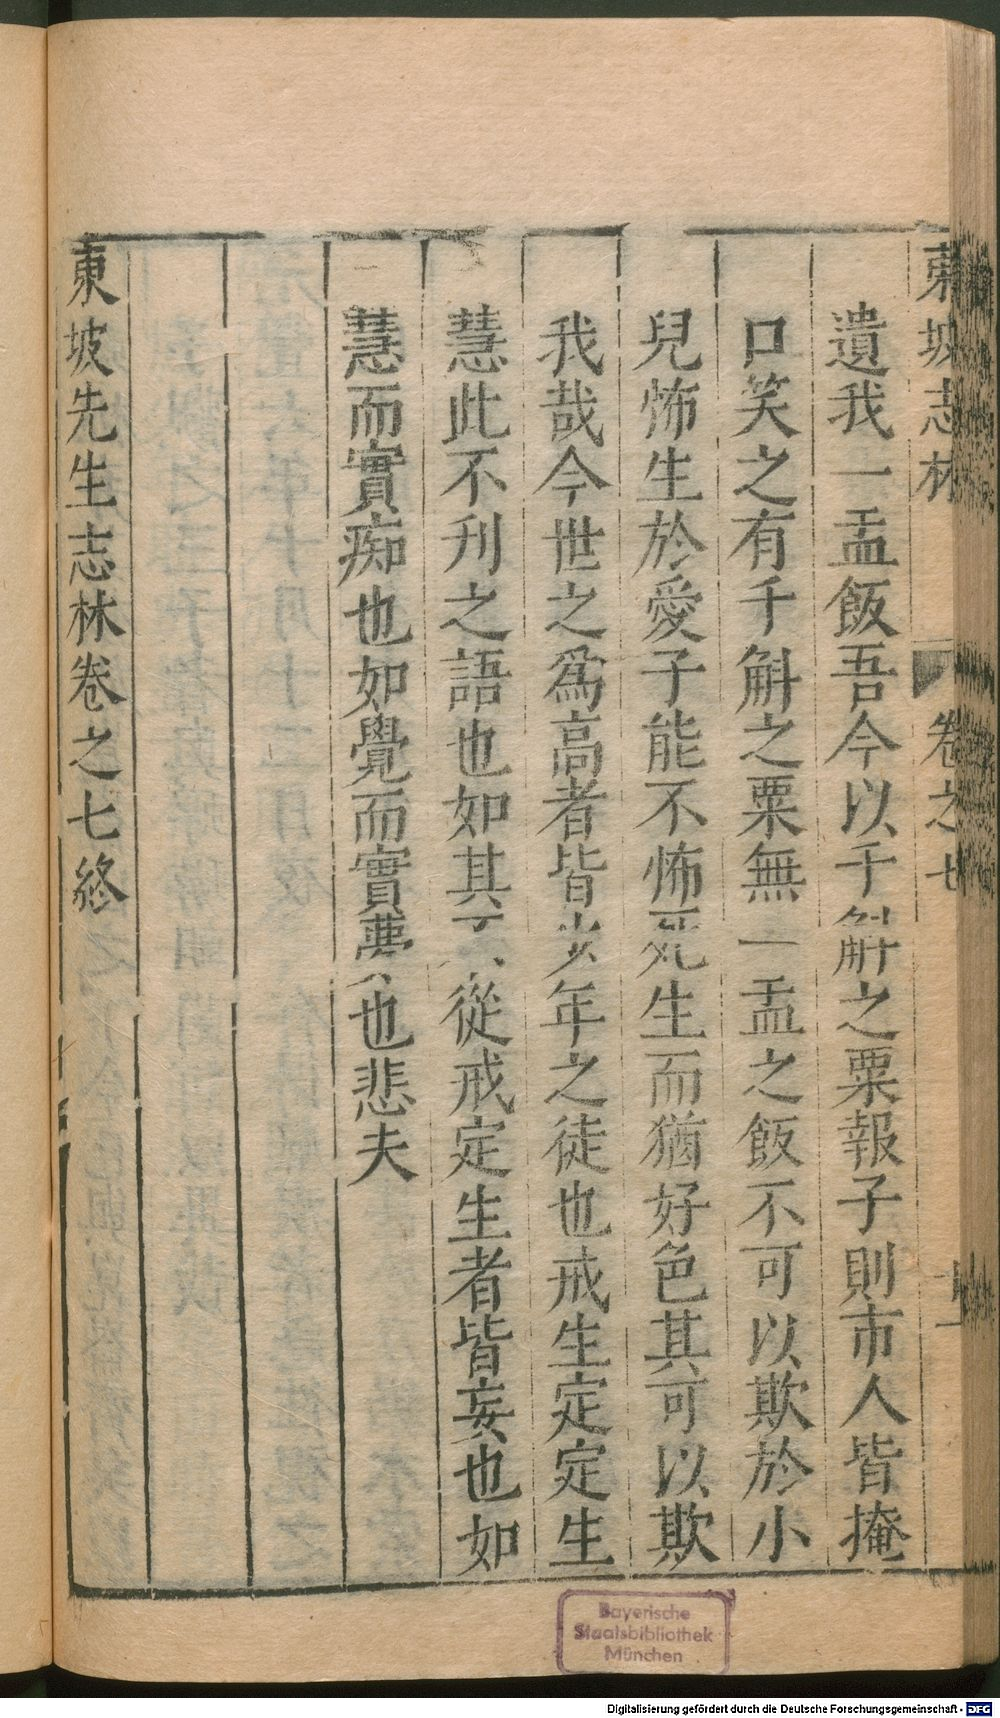 東坡志林 卷之七 十一
遺我一盂飯吾今以千斛之粟報子則市人皆掩
口笑之有千斛之粟無一盂之飯不可以欺於小
兒怖生於愛子能不怖死生而猶好色其可以欺
我哉今世之爲高者皆少年之徒也戒生定定生
慧此不刋之語也如其不從戒定生者皆妄也如
慧而實痴也如覺而實夢也悲夫
東坡先生志林卷之七終
Bayerische
Staatsbibliothek
München
Digitalisierung gefördert durch die Deutsche Forschungsgemeinschaft - DFG